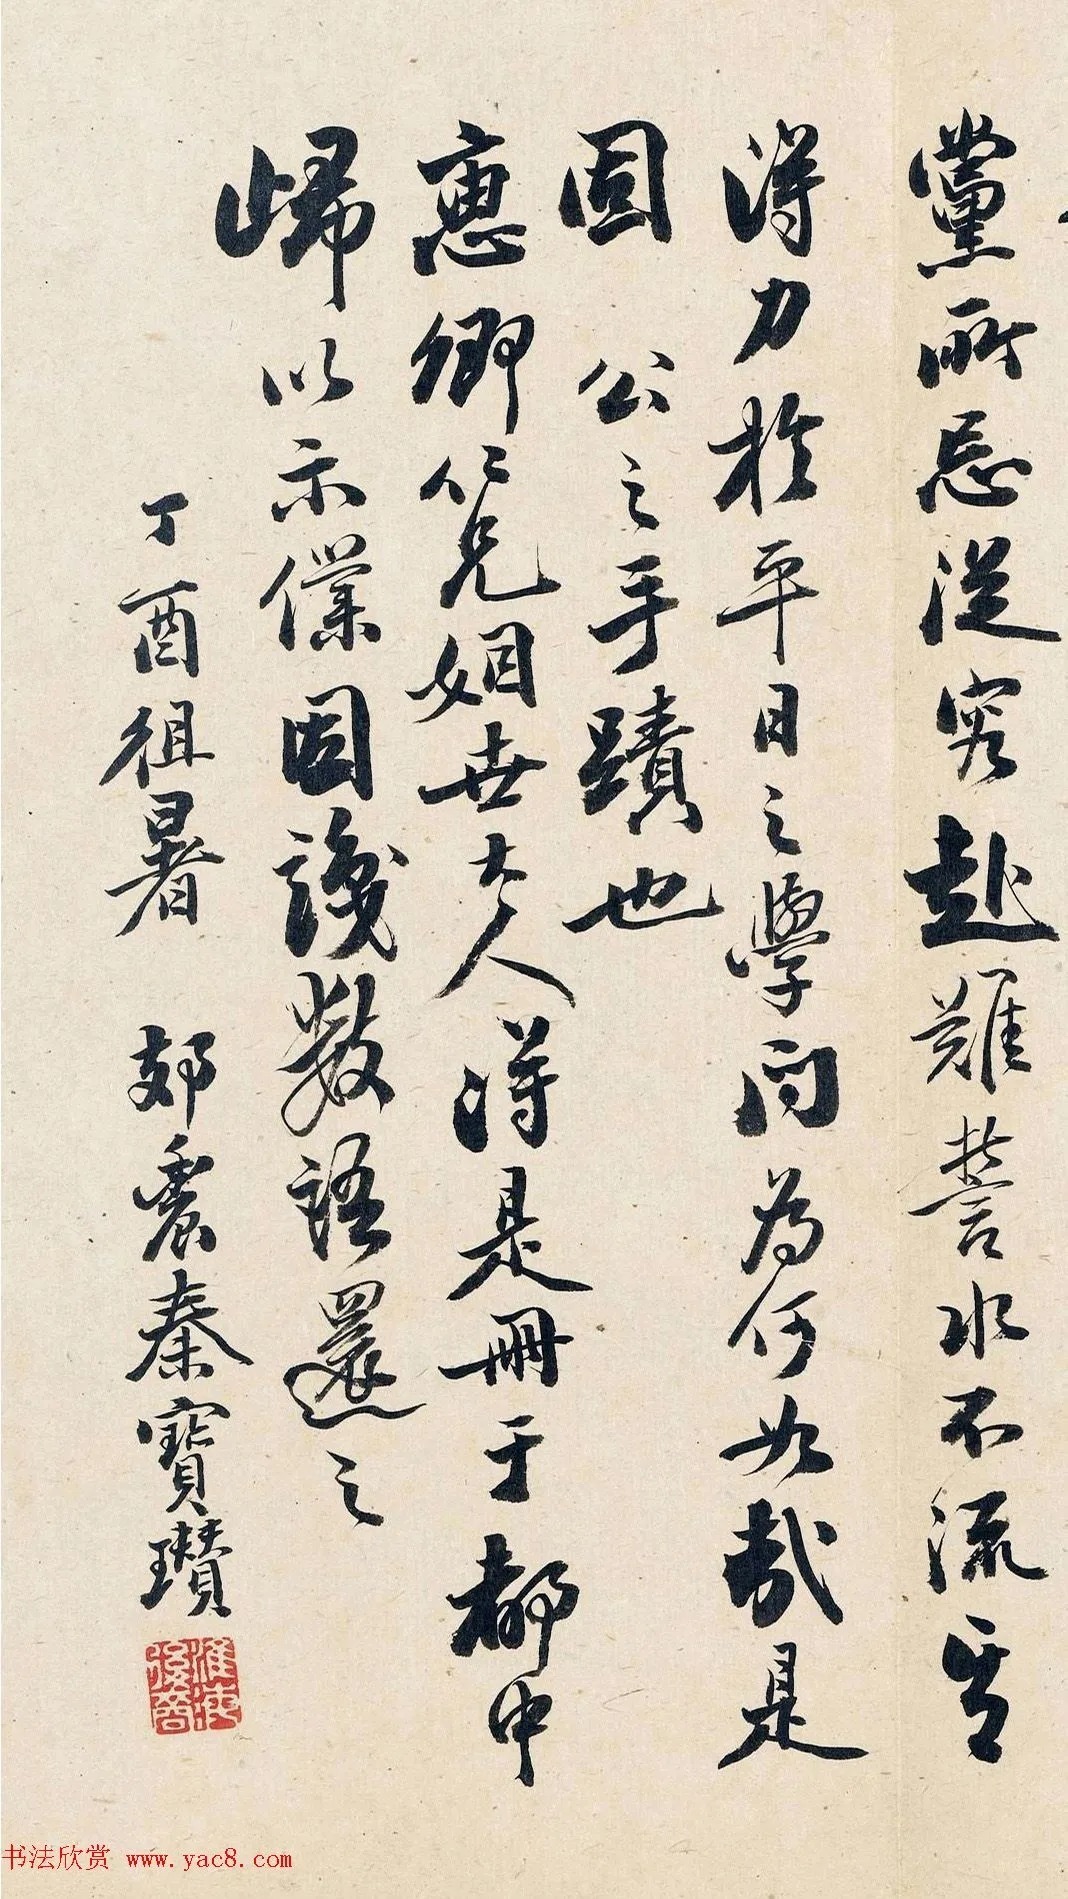 黨所忌從容赴難誓水不流其
得力於平日之學問為何如哉是
固 公之手蹟也
惠卿仁兄姻世大人得是冊于都中
歸以示僕因識數語還之
丁酉徂暑 郊農秦寶瓚
淮海後裔
书法欣赏 www.yac8.com